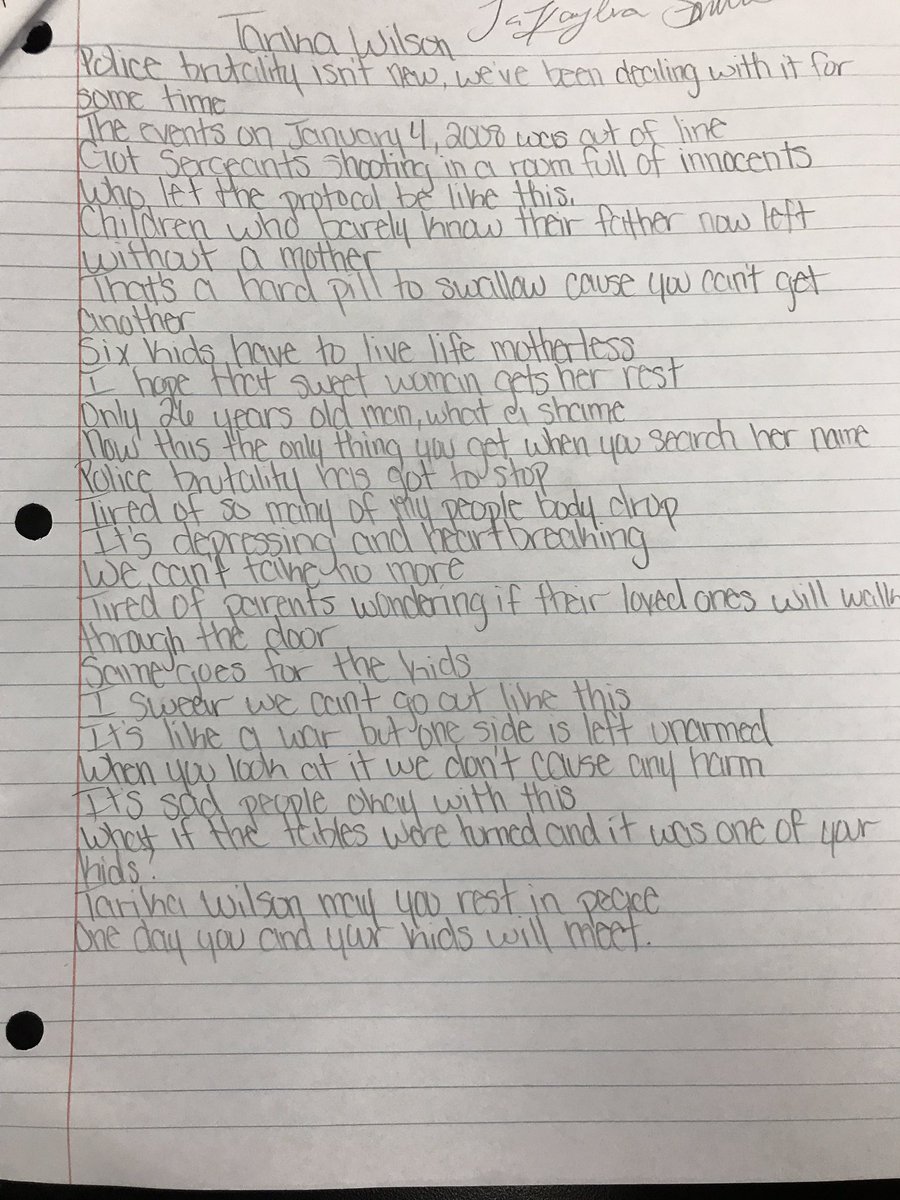 Tarika Wilson
Police brutality isn't new, we've been dealing with it for
some time
The events on January 4, 2008 was out of line
Got Sergeants shooting in a room full of innocents
Who let the protocol be like this.
Children who barely know their father now left
without a mother
That's a hard pill to swallow cause you can't get
another
Six kids have to live life motherless
I hope that sweet woman gets her rest
Only 26 years old man, what a shame
Now this the only thing you get when you search her name
Police brutality has got to stop
Tired of so many of my people body drop
It's depressing and heartbreaking
We can't take no more
Tired of parents wondering if their loved ones will walk
through the door
Same Goes for the kids
I swear we can't go out like this
It's like a war but one side is left unarmed
When you look at it we don't cause any harm
It's sad people okay with this
What if the tables were turned and it was one of your
kids?
Tarika Wilson may you rest in peace
One day you and your kids will meet.